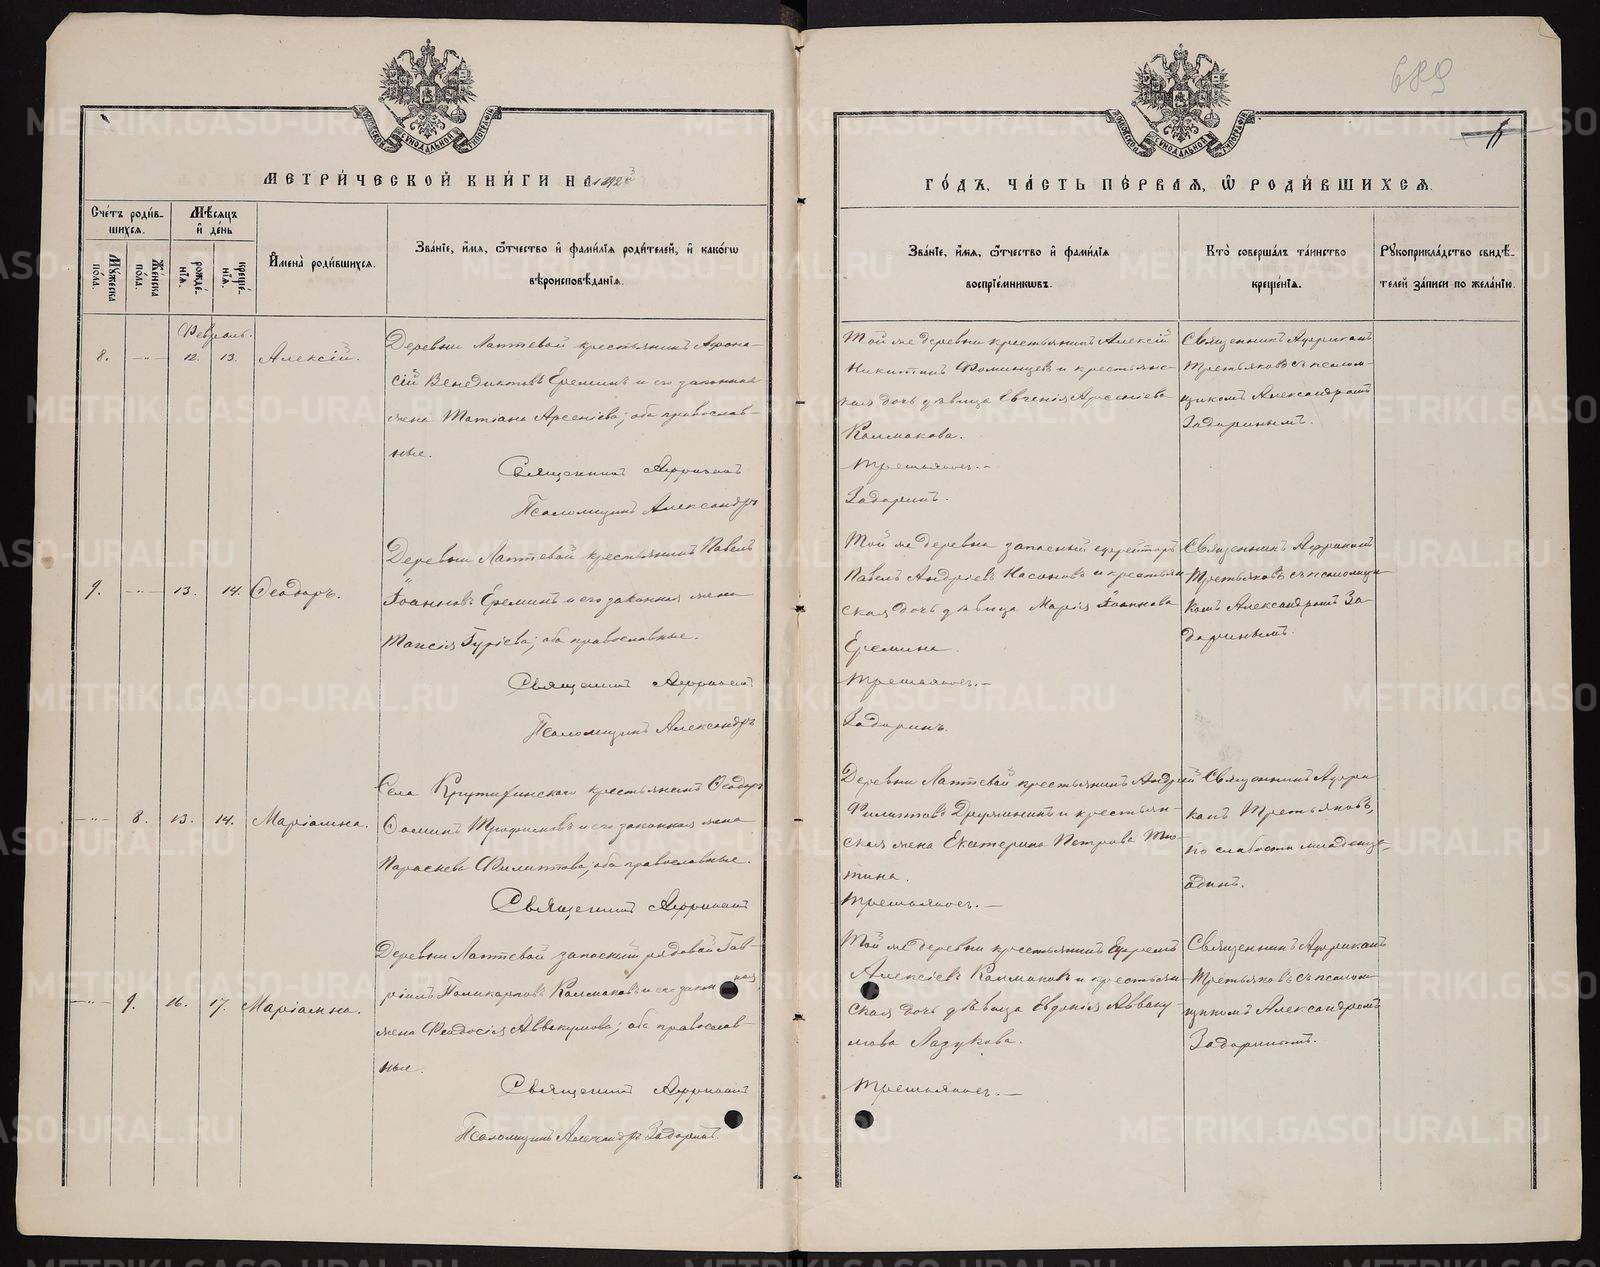 689
МЕТРИ́ЧЕСКОЙ КНИ́ГИ НА 1892
ГО́ДЪ, ЧА́СТЬ ПЕ́РВАЯ, Ѡ РОДИ́ВШИХСЯ.
Сче́тъ роди́в-
шихся.
Мѣсяцъ
и́ де́нь
Му́жеска
по́ла.
Же́нска
по́ла.
рожде́-
нія.
креще́-
нія.
И́мена̀ роди́вшихся.
Зва́ніе, и́мя, ѻ́тчество и́ фами́лія роди́телей, и́ како́гѡ
вѣроисповѣ́данія.
Зва́ніе, и́мя, ѻ́тчество и́ фами́лія
воспріе́мникѡвъ.
Кто̀ соверша́лъ та́инство
креще́нія.
Рꙋкоприкла́дство свидѣ́-
телей за́писи по жела́нію.
Февраль.
8. 12. 13. Алексій.
Деревни Лаптевой крестьянинъ Афона-
сій Венедиктовъ Ереминъ и его законная
жена Татіана Арсеніева; оба православ-
ные.
Священникъ Африканъ
Псаломщикъ Александръ
Той же деревни крестьянинъ Алексій
Никитинъ Фоминцевъ и крестьянс-
кая дочь дѣвица Евгенія Арсеніева
Колмакова.
Третьяковъ.
Задоринъ.
Священникъ Африканъ
Третьяковъ съ псалом-
щикомъ Александромъ
Задоринымъ.
9. 13. 14. Ѳеодоръ.
Деревни Лаптевой крестьянинъ Павелъ
Іоанновъ Ереминъ и его законная жена
Таисія Гуріева; оба православные.
Священникъ Африканъ
Псаломщикъ Александръ
Той же деревни запасный ефрейторъ
Павелъ Андреевъ Насоновъ и крестьян
ская дочь дѣвица Марія Іоаннова
Еремина.
Третьяковъ.
Задоринъ.
Священникъ Африканъ
Третьяковъ съ псаломщи-
комъ Александромъ За-
доринымъ.
8. 13. 14. Маріамна.
Села Крутихинскаго крестьянинъ Ѳеодоръ
Ѳоминъ Трофимовъ и его законная жена
Параскева Филиппова; оба православные.
Священникъ Африканъ
Деревни Лаптевой крестьянинъ Андрей
Филипповъ Дружининъ и крестьян-
ская жена Екатерина Петрова Тю-
тина.
Третьяковъ.
Священникъ Афри-
канъ Третьяковъ,
по слабости младенца,
одинъ.
9. 16. 17. Маріамна.
Деревни Лаптевой запасный рядовой Гав-
ріилъ Поликарповъ Колмаковъ и его закон
ная
жена Ѳеодосія Аввакумова; оба православ-
ные.
Священникъ Африканъ
Псаломщикъ Александръ Задоринъ.
Той же деревни крестьянинъ Ефремъ
Алексіевъ Колмаковъ и крестьян
ская дочь дѣвица Евдокія Авваку-
мова Лазукова.
Третьяковъ.
Священникъ Африканъ
Третьяковъ съ псалом-
щикомъ Александромъ
Задоринымъ.
METRIKI.GASO-URAL.RU